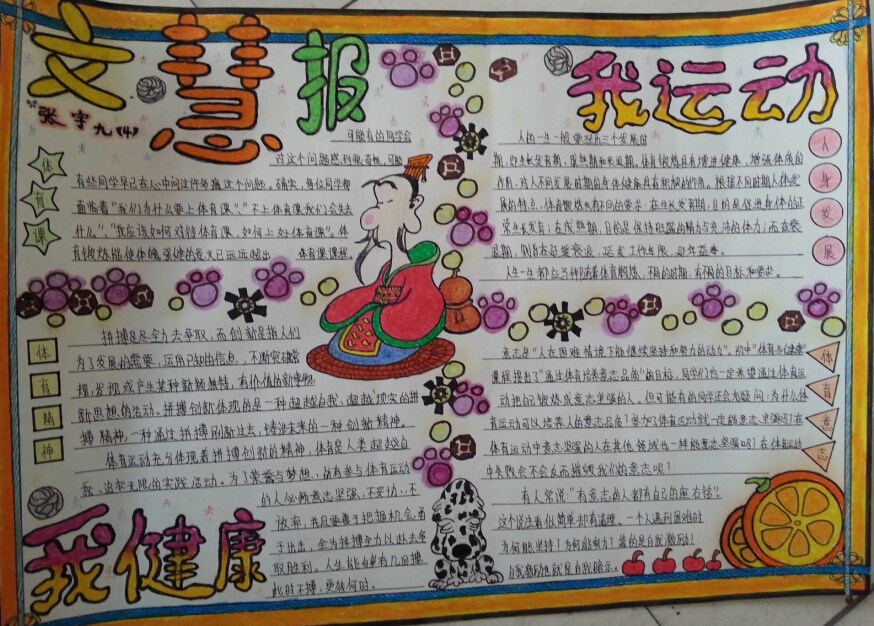 文慧报
张宇 九(4)
体育课
可能有的同学会
对这个问题感到很奇怪,可能
有些同学早已在心中问过许多遍这个问题。确实,每位同学都
面临着“我们为什么要上体育课”、“不上体育课我们会失去
什么”、“我应该如何对待体育课,如何上好体育课”。体
育锻炼能使体魄强健的意义已远远超出 体育课课程
我运动
人身发展
人的一生一般要经历三个发展时
期,即生长发育期、成熟期和衰退期。体育锻炼具有增进健康、增强体质的
作用,对人不同发展时期的身体健康具有积极的作用。根据不同时期人体发
展的特点,体育锻炼也有不同的要求:在生长发育期,目的是促进身体的正
常生长发育;在成熟期,目的是保持旺盛的精力与充沛的体力;而在衰
退期,则为延缓衰退,延长工作年限,延年益寿。
人生一年都应当伴随着体育锻炼,不同的时期,有不同的目标和要求。
体育精神
拼搏是尽全力去争取,而创新是指人们
为了发展的需要,运用已知的信息,不断突破常
规,发现或产生某种新颖、独特、有价值的新事物、
新思想的活动。拼搏创新体现的是一种超越自我、超越现实的拼
搏精神,一种通过拼搏刷新过去,铸造未来的一种创新精神。
体育运动充分体现着拼搏创新的精神,体育是人类超越自
我、追求无限的实践活动。为了荣誉与梦想,所有参与体育运动
的人必须意志坚强、不妥协、不
放弃,我且要善于把握机会,勇
于出击,全力拼搏全力以赴去争
取胜利。人生能有几回搏,
此时不搏,更待何时。
我健康
体育意志
意志是“人在困难情境下能继续坚持和努力的动力”。初中“体育与健康”
课程提出了“通过体育培养意志品质”的目标,同学们也一定希望通过体育运
动把自己锻炼成意志坚强的人。但可能有的同学还会有疑问:为什么体
育运动可以培养人的意志品质?参加了体育运动就一定能意志坚强吗?在
体育运动中意志坚强的人在其他领域也一样能意志坚强吗?在体育运动
中失败会不会反而摧毁我们的意志呢?
有人常说:“有意志的人都有自己的座右铭”。
这个说法看似简单却有道理。一个人遇到困难时
为何能坚持?为何能努力?靠的是自我激励!
自我激励也就是自我暗示。